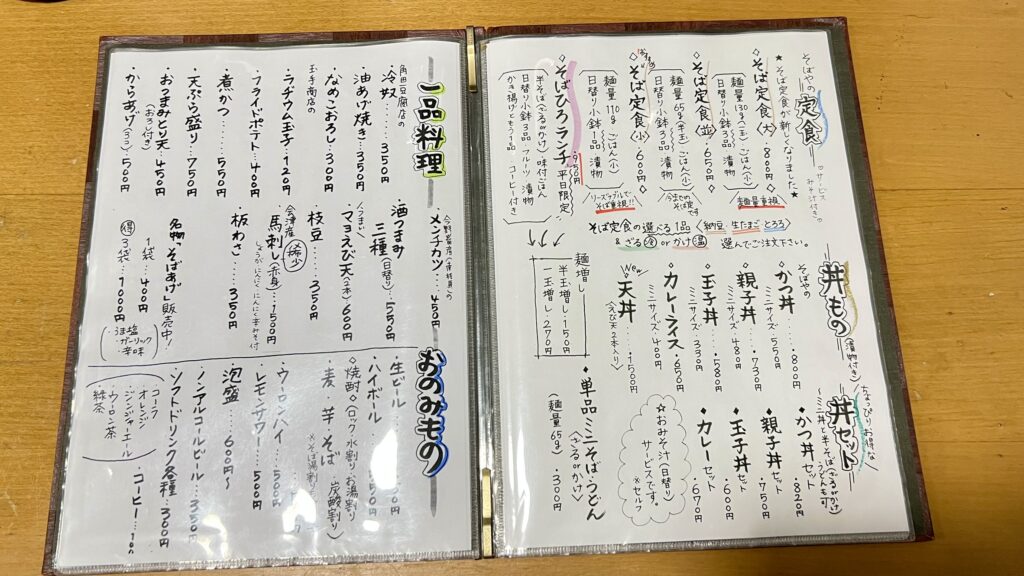 そばやの定食
▽サービス みそ汁付き。
★そば定食が新しくなりました★
◇そば定食〈大〉・800円◇
麺量130g(1玉) ごはん(小)
日替り小鉢3品 漬物
麺量重視
◇そば定食〈並〉・650円
麺量65g(半玉) ごはん(小)
日替り小鉢3品 漬物
今までのそば定です
おすすめ
◇そば定食〈小〉・600円◇
麺量110g ごはん(小)
日替り小鉢1品 漬物
リーズナブルでそば重視!!
◇そばひろランチ 平日限定◇
950円
半そば(ざるorかけ) 味付ごはん
日替り小鉢3品 フルーツ 漬物
かき揚げともう1品 コーヒー付き
そば定食の選べる1品〈納豆 生たまご とろろ〉
&ざる(冷)orかけ(温) 選んでご注文下さい。
そばやの
丼もの(漬物付き)
・かつ丼・・・800円
ミニサイズ・550円
・親子丼・・・730円
ミニサイズ・480円
・玉子丼・・・580円
ミニサイズ・330円
・カレーライス・650円
ミニサイズ・400円
New
・天丼・・・1500円
(えび天2本入り)
麺増し
半玉増し・150円
一玉増し・270円
ちょっぴりお得な
丼セット
〜ミニ丼と半そば(ざるorかけ) うどんも可
◆かつ丼セット・820円
◆親子丼セット・750円
◆玉子丼セット・600円
◆カレーセット・670円
☆おみそ汁(日替り)
サービスです。
※セルフ
◆単品ミニそば・うどん
(ざるorかけ)
(麺量65g)・300円
一品料理
角田豆腐店の
・冷奴・・・350円
・油あげ焼き・・350円
・なめこおろし・300円
玉手商店の
・ラヂウム玉子・120円
・フライドポテト・・400円
・煮かつ・・・550円
・天ぷら盛り・・750円
・おつまみとり天・・450円
(おろし付き)
・からあげ(5コ)500円
・メンチカツ・・・450円
・酒つまみ三種(日替り)・・550円
・マヨえび天(2本)・600円
・枝豆・・・350円
会津産
・馬刺し(赤身)・・1500円
稀少
しょうが・にんにく・にんにく辛みそ付
・板わさ・・・350円
名物「そばあげ」販売中!
1袋・・・400円
得 3袋・・・1000円
・うま塩
・ガーリック
・辛味
おのみもの
・生ビール
・ハイボール
◇焼酎◇(ロック・水割り・お湯割り
・麦・芋・そば 炭酸割)
・ウーロンハイ
・レモンサワー・・500円
・泡盛・・・600円〜
・ノンアルコールビール・・350円
・ソフトドリンク各種・・300円
・コーラ
・オレンジ
・ジンジャーエール
・ウーロン茶
・緑茶
・コーヒー